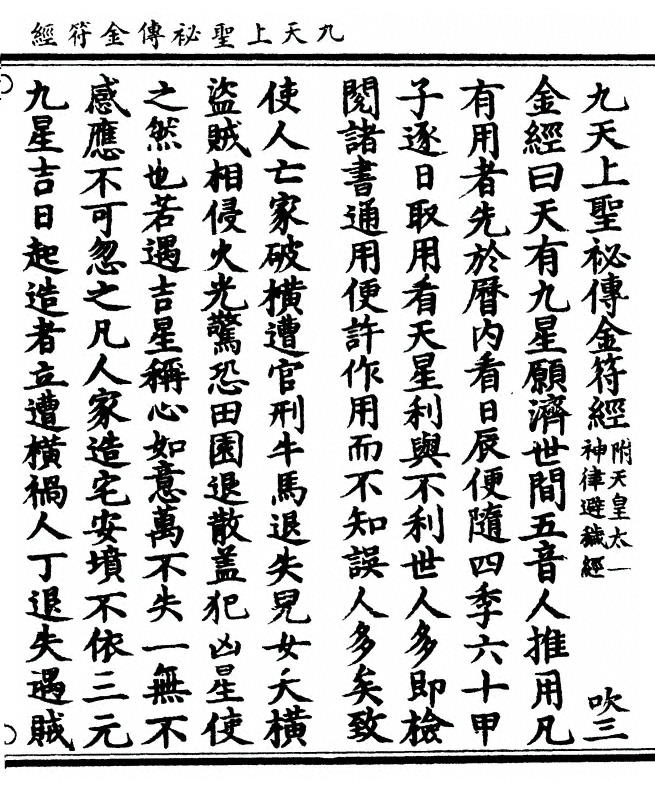 九天上聖祕傳金符經
九天上聖祕傳金符經附天皇太一神律避穢經 吹三
金經曰天有九星願濟世間五音人推用凡
有用者先於曆內看日辰便隨四季六十甲
子逐日取用看天星利與不利世人多即檢
閱諸書通用便許作用而不知誤人多矣致
使人亡家破橫遭官刑牛馬退失兒女夭橫
盜賊相侵火光驚恐田園退散盖犯凶星使
之然也若遇吉星稱心如意萬不失一無不
感應不可忽之凡人家造宅安墳不依三元
九星吉日起造者立遭橫禍人丁退失遇賊